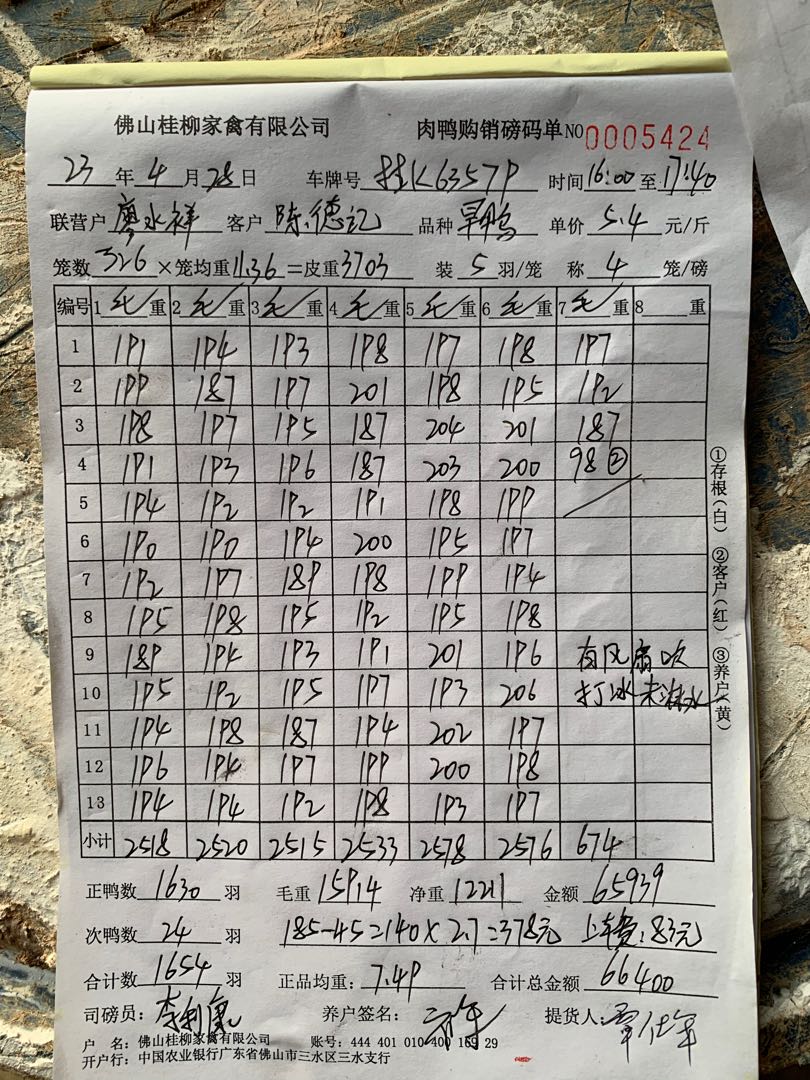 佛山桂柳家禽有限公司 肉鸭购销磅码单 NO 0005424
23 年 4 月 28 日 车牌号 桂K6357P 时间 16:00 至 17:40
联营户 廖水祥 客户 陈德记 品种 旱鸭 单价 5.4 元/斤
笼数 326 ×笼均重 11.36 =皮重 3703 装 5 羽/笼 称 4 笼/磅
编号 1 毛 重 2 毛 重 3 毛 重 4 毛 重 5 毛 重 6 毛 重 7 毛 重 8 重
1 191 194 193 198 197 198 197
2 199 187 197 201 198 195 192
3 198 197 195 187 204 201 187
4 191 193 196 187 203 200 98②
5 194 192 192 191 198 199
6 190 190 194 200 195 197
7 192 197 189 198 199 194
8 195 198 195 192 195 198
9 189 194 193 191 201 196 有风扇吹
10 195 192 195 197 193 206 打冰未淋水
11 194 198 187 194 202 197
12 196 194 197 199 200 198
13 194 194 192 198 193 197
小计 2518 2520 2515 2533 2578 2576 674
正鸭数 1630 羽 毛重 15914 净重 12211 金额 65939
次鸭数 24 羽 185-45=140×2.7=378元 上车费:83元
合计数 1654 羽 正品均重: 7.49 合计总金额 66400
司磅员: 养户签名: 提货人:
户 名: 佛山桂柳家禽有限公司 账号: 444 401 010 400 169 29
开户行: 中国农业银行广东省佛山市三水区三水支行
①存根(白) ②客户(红) ③养户(黄)